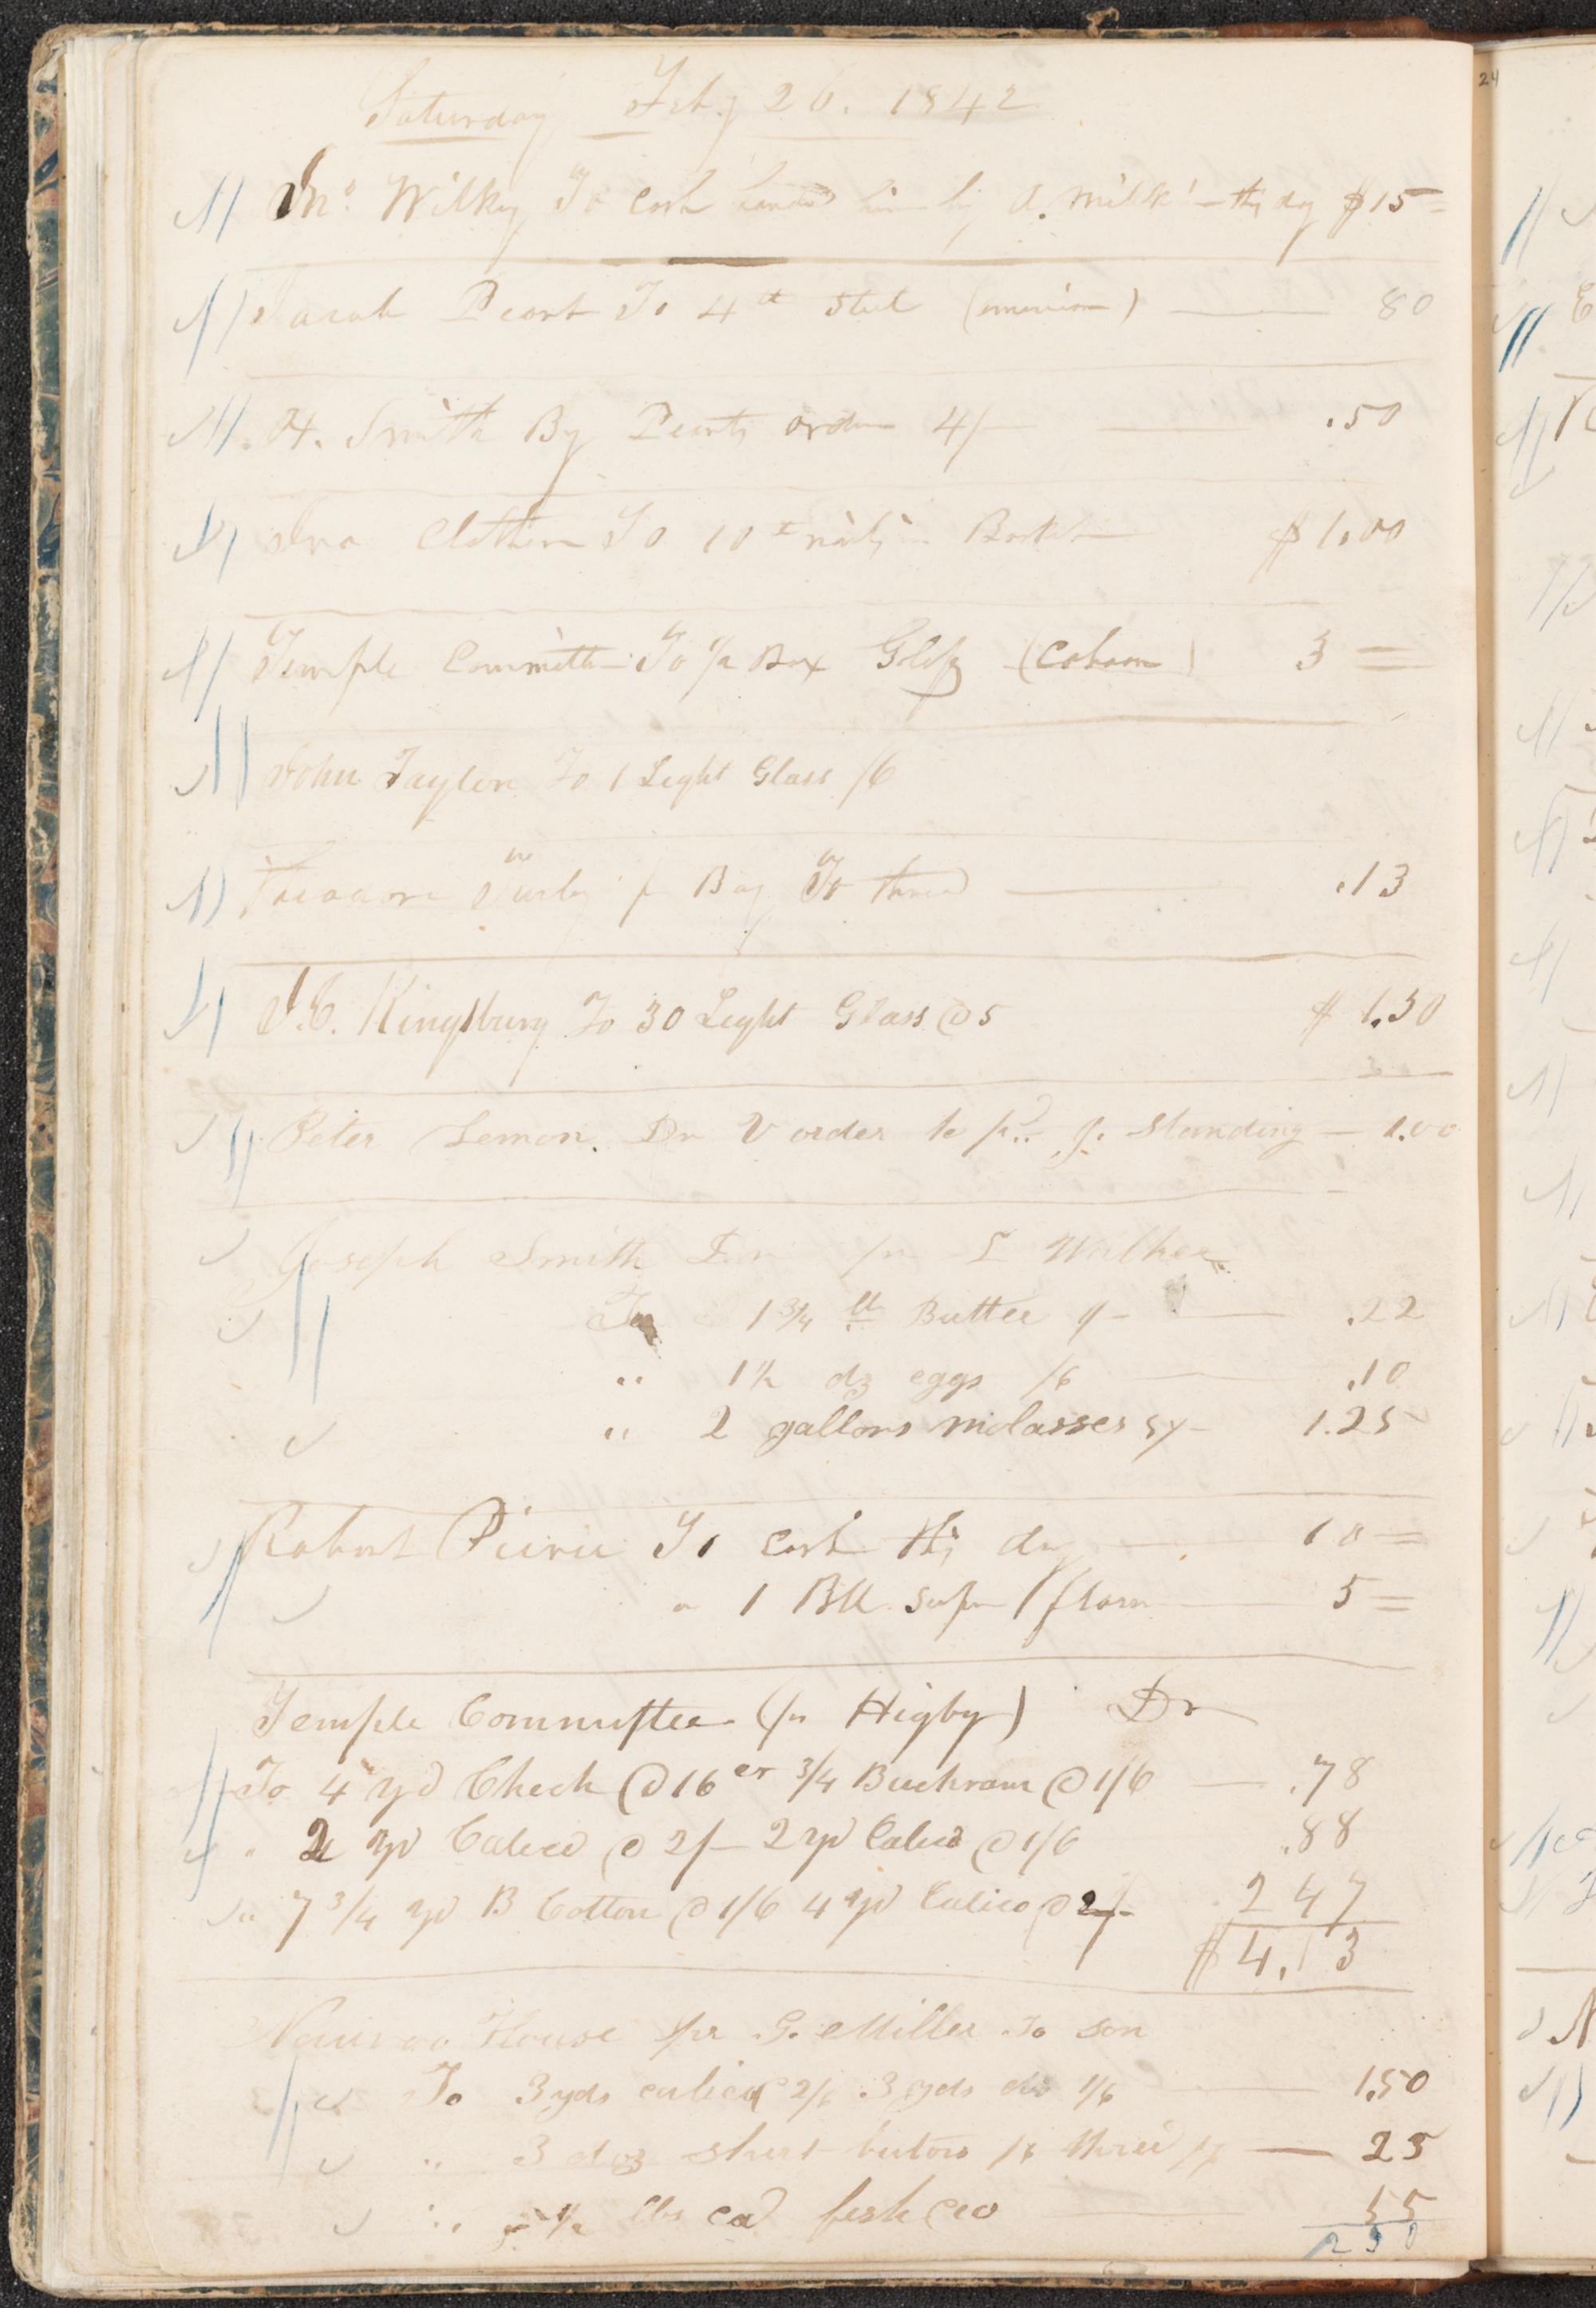 Saturday Feb.y 26. 1842
Wilkey To Cash handed him by A. this day $15=
Sarah To 4 lb Steel 80
H. Smith By order 4/– .50
Ira To 10 lb nails in $1.00
Temple Committe To ½ Box 3=
John Taylor To 1 Light Glass /6
Theodore Turley pr Boy To thread .13
J.C. Kingsbury To 30 Light Glass @ 5 $1.50
Peter Lemon. Dr V order to pr. J. Standing – 1.00
Joseph Smith Dr pr L Walker
To 1¾ lb Butter 1/- .22
" 1½ dz eggs /6 .10
" 2 gallons molasses 5/- 1.25
Robert Pierce To cash this day 10=
" 1 Bll supr flour 5=
Temple Committee (pr Higby) Dr
To 4 yd Check @ 16 ct ¾ Buckram @ 1/6 — .78
" 2 yd Calico @ 2/– 2 yd Calico @ 1/6 .88
" 7¾ yd B Cotton @ 1/6 4 yd Calico @ 2/- 2 47
$4.13
Nauvoo House pr G. Miller To son
To 3 yds calico @ 2/6 3 yds do 1/6 1.50
" 3 doz shirt butons /6 thred — 25
" 5½ lbs cod fish @ 10 55
2 30
24